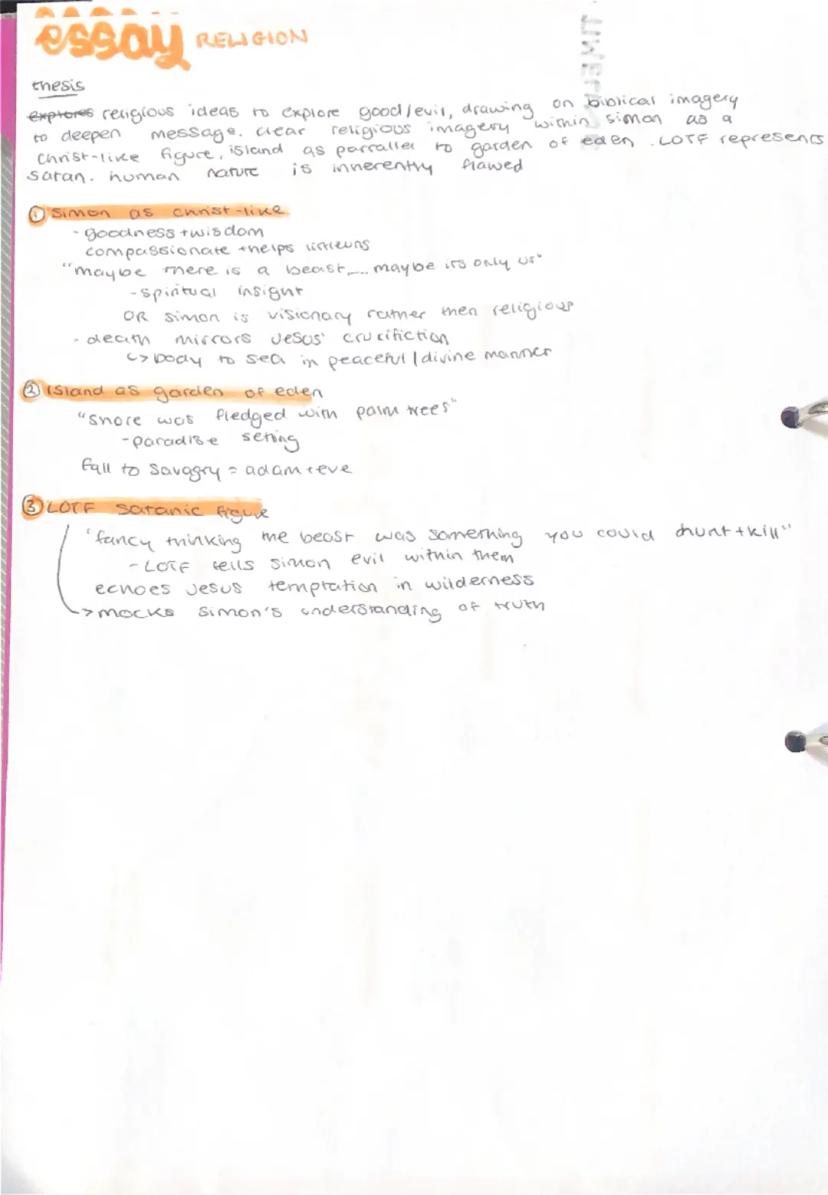 essay RELIGION
thesis
explores religious ideas to explore good/evil, drawing on biblical imagery
to deepen message. clear religious imagery within simon as a
christ-like figure, island as parrallel to garden of eden. LOTF represents
satan. human nature is inherently flawed
① simon as christ-like
- goodness + wisdom
compassionate + helps littleuns
"maybe there is a beast,... maybe its only us"
- spiritual insight
OR simon is visionary rather then religious
- death mirrors Jesus' crucifiction
↳ body to sea in peaceful/divine manner
② island as garden of eden
"shore was fledged with palm trees"
- paradise setting
fall to savagry = adam + eve
③ LOTF satanic figure
'fancy thinking the beast was something you could hunt + kill"
- LOTF tells simon evil within them
echoes Jesus temptation in wilderness
→ mocks simon's understanding of truth